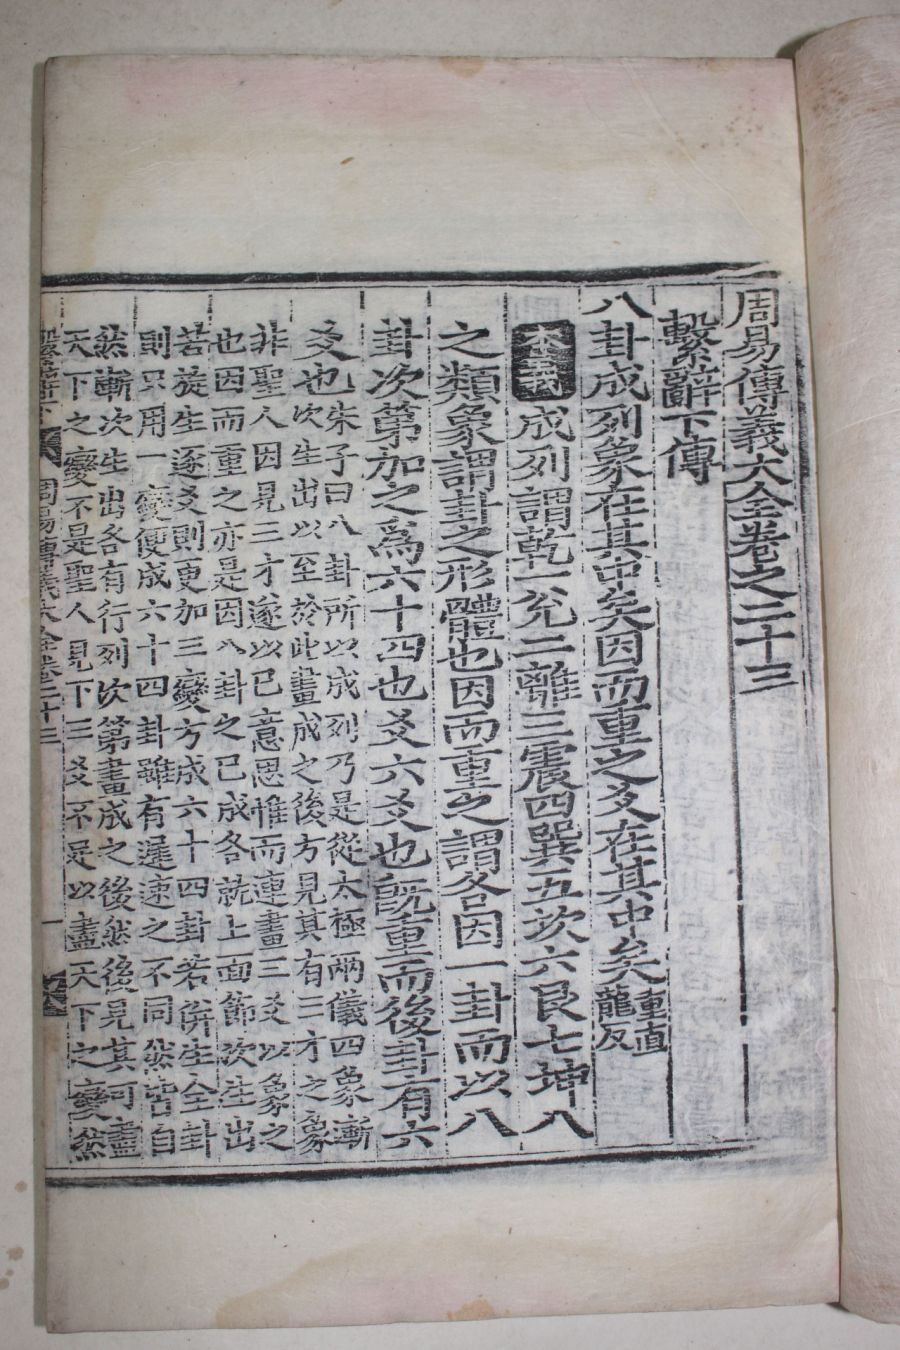 周易傳義大全卷之二十三
繫辭下傳
八卦成列象在其中矣因而重之爻在其中矣重直龍反
本義成列謂乾一兌二離三震四巽五坎六艮七坤八
之類象謂卦之形體也因而重之謂各因一卦而以八
卦次第加之爲六十四也爻六爻也旣重而後卦有六
爻也
朱子曰八卦所以成列乃是從太極兩儀四象漸
次生出以至於此畫成之後方見其有三才之象
非聖人因見三才遂以己意思惟而連畫三爻以象之
也因而重之亦是因八卦之已成各就上面節次生出
若旋生逐爻則更加三變方成六十四卦若倂生全卦
則只用一變便成六十四卦雖有遲速之不同然皆自
然漸次生出各有行列次第畫成之後然後見其可盡
天下之變不是聖人見下三爻不足以盡天下之變然
周易傳義大全卷二十三 一